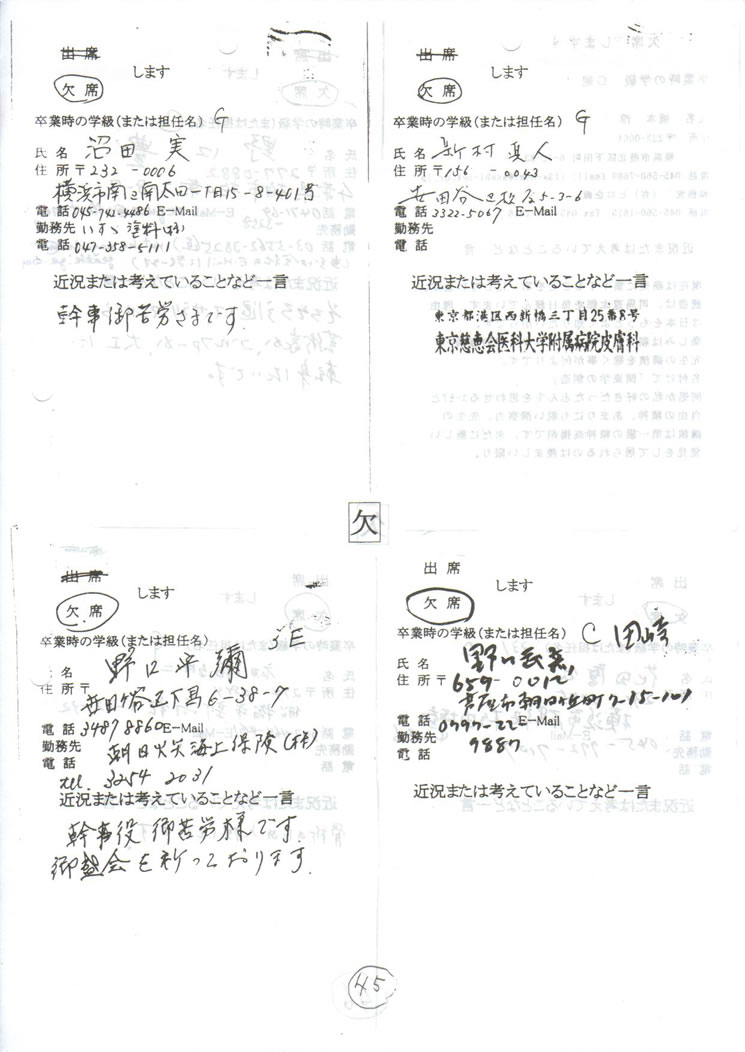 出 席
します
欠 席
卒業時の学級(または担任名) G
氏 名 沼田 実
住 所 〒232-0006
横浜市南区南太田一丁目15-8-401号
電 話 045-742-4486 E-Mail
勤務先 いすゞ塗料(株)
電 話 047-358-4111
近況または考えていることなど一言
幹事御苦労さまです
出 席
します
欠 席
卒業時の学級(または担任名) G
氏 名 新村 真人
住 所 〒156-0043
世田谷区松原5-3-6
電 話 3322-5067 E-Mail
勤務先
電 話
近況または考えていることなど一言
東京都港区西新橋三丁目25番8号
東京慈恵会医科大学附属病院皮膚科
欠
出 席
します
欠 席
卒業時の学級(または担任名) 3E
名 野口 彌
住 所 〒
世田ヶ谷区下馬6-38-7
電 話 3487 8860 E-Mail
勤務先 朝日火災海上保険(株)
電 話
tel. 3254 2031
近況または考えていることなど一言
幹事役 御苦労様です.
御盛会を祈っております.
出 席
します
欠 席
卒業時の学級(または担任名) C 田崎
氏 名 野口
住 所 〒659-0012
芦屋市朝日ヶ丘町7-15-101
電 話 0797-22 E-Mail
勤務先 9887
電 話
近況または考えていることなど一言
45